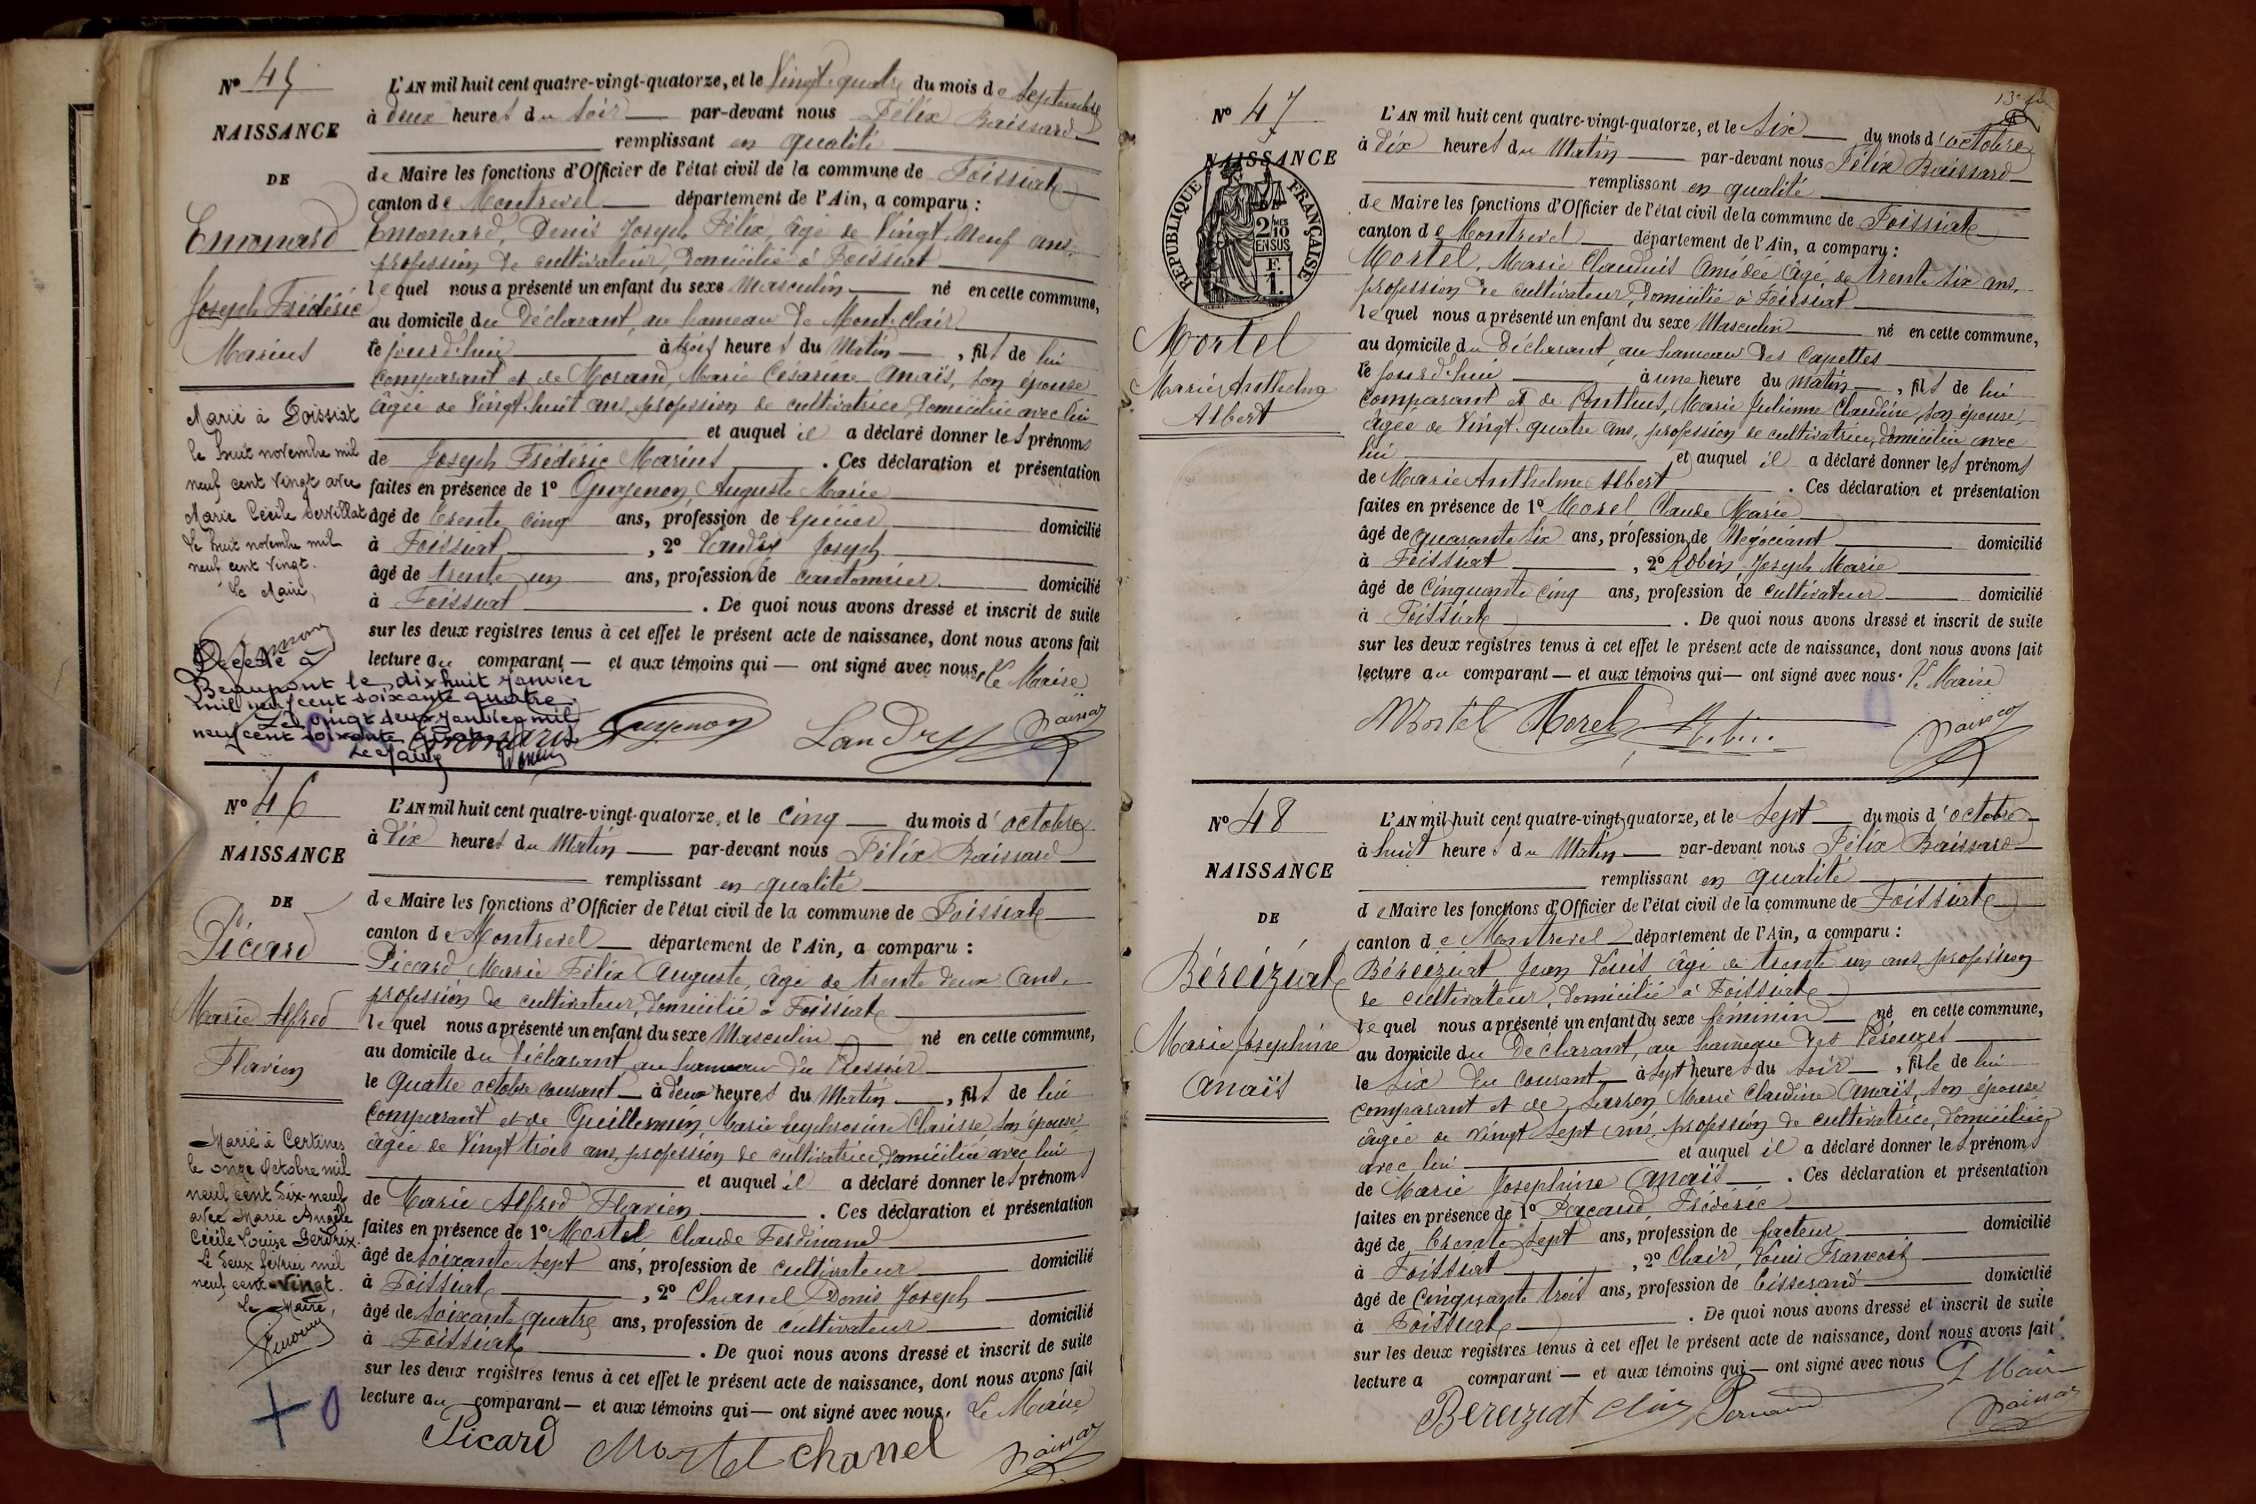 Nº 45
NAISSANCE
DE
Emonard
Joseph Frédéric
Marius
Marié à Foissiat
le huit novembre mil
neuf cent vingt avec
Marie Cécile Servillat
le huit novembre mil
neuf cent vingt.
Le Maire,
Décédé à
Beaupont le dix huit janvier
mil neuf cent soixante quatre.
Le vingt deux janvier mil
neuf cent soixante quatre
Le Maire
L'AN mil huit cent quatre-vingt-quatorze, et le Vingt quatre du mois de Septembre
à deux heures du soir par-devant nous Félix Baissard
remplissant en qualité
de Maire les fonctions d'Officier de l'état civil de la commune de Foissiat
canton de Montrevel département de l'Ain, a comparu :
Emonard, Denis Joseph Félix, âgé de Vingt-Neuf ans,
profession de cultivateur, domicilié à Foissiat
lequel nous a présenté un enfant du sexe Masculin né en cette commune,
au domicile du Déclarant, au hameau de Mont-clair
le jourd'hui à trois heures du Matin, fils de lui
comparant et de Morand, Marie Césarine Anaïs, son épouse
âgée de Vingt-huit ans, profession de cultivatrice, domiciliée avec lui
et auquel il a déclaré donner les prénoms
de Joseph Frédéric Marius. Ces déclaration et présentation
faites en présence de 1º Guyenon, Auguste Marie
âgé de trente cinq ans, profession de Epicier domicilié
à Foissiat, 2º Landry Joseph
âgé de trente un ans, profession de cantonnier domicilié
à Foissiat. De quoi nous avons dressé et inscrit de suite
sur les deux registres tenus à cet effet le présent acte de naissance, dont nous avons fait
lecture au comparant et aux témoins qui ont signé avec nous, Le Maire
Emonard Guyenon Landry Baissard
Nº 46
NAISSANCE
DE
Picard
Marie Alfred
Flavien
Marié à Certines
le onze Octobre mil
neuf cent dix-neuf
avec Marie Angèle
Cécile Louise
Le deux février mil
neuf cent vingt.
Le Maire,
L'AN mil huit cent quatre-vingt-quatorze, et le cinq du mois d'octobre
à dix heures du Matin par-devant nous Félix Baissard
remplissant en qualité
de Maire les fonctions d'Officier de l'état civil de la commune de Foissiat
canton de Montrevel département de l'Ain, a comparu :
Picard Marie Félix Auguste, âgé de trente deux ans,
profession de cultivateur, domicilié à Foissiat
lequel nous a présenté un enfant du sexe Masculin né en cette commune,
au domicile du Déclarant, au hameau du Pressoir
le Quatre octobre courant à deux heures du Matin, fils de lui
comparant et de Guillermin, Marie Euphrosine Clarisse, son épouse
âgée de Vingt trois ans, profession de cultivatrice, domiciliée avec lui
et auquel il a déclaré donner les prénoms
de Marie Alfred Flavien. Ces déclaration et présentation
faites en présence de 1º Mortel Claude Ferdinand
âgé de soixante sept ans, profession de cultivateur domicilié
à Foissiat, 2º Chanel Denis Joseph
âgé de soixante quatre ans, profession de cultivateur domicilié
à Foissiat. De quoi nous avons dressé et inscrit de suite
sur les deux registres tenus à cet effet le présent acte de naissance, dont nous avons fait
lecture au comparant et aux témoins qui ont signé avec nous. Le Maire
Picard Mortel Chanel Baissard
Nº 47
NAISSANCE
DE
RÉPUBLIQUE FRANÇAISE
2 MES
10
EN SUS
F.
1.
Mortel
Marie Anthelme
Albert
L'AN mil huit cent quatre-vingt-quatorze, et le Six du mois d'octobre
à dix heures du Matin par-devant nous Félix Baissard
remplissant en qualité
de Maire les fonctions d'Officier de l'état civil de la commune de Foissiat
canton de Montrevel département de l'Ain, a comparu :
Mortel, Marie Claudius Amédée âgé de trente six ans,
profession de cultivateur, domicilié à Foissiat
lequel nous a présenté un enfant du sexe Masculin né en cette commune,
au domicile du Déclarant, au hameau des Capettes
le jourd'hui à une heure du matin, fils de lui
comparant et de Ponthus, Marie Julienne Claudine, son épouse,
âgée de Vingt-quatre ans, profession de cultivatrice, domiciliée avec
lui et auquel il a déclaré donner les prénoms
de Marie Anthelme Albert. Ces déclaration et présentation
faites en présence de 1º Morel Claude Marie
âgé de quarante six ans, profession de Négociant domicilié
à Foissiat, 2º Robin, Joseph Marie
âgé de cinquante cinq ans, profession de cultivateur domicilié
à Foissiat. De quoi nous avons dressé et inscrit de suite
sur les deux registres tenus à cet effet le présent acte de naissance, dont nous avons fait
lecture au comparant et aux témoins qui ont signé avec nous. Le Maire
Mortel Morel Robin Baissard
Nº 48
NAISSANCE
DE
Béreiziat
Marie Josephine
Anaïs
L'AN mil huit cent quatre-vingt-quatorze, et le Sept du mois d'octobre
à huit heures du Matin par-devant nous Félix Baissard
remplissant en qualité
de Maire les fonctions d'Officier de l'état civil de la commune de Foissiat
canton de Montrevel département de l'Ain, a comparu :
Béreiziat Jean Louis âgé de trente un ans profession
de cultivateur, domicilié à Foissiat
lequel nous a présenté un enfant du sexe féminin né en cette commune,
au domicile du Déclarant, au hameau des
le Six du courant à sept heures du soir, fille de lui
comparant et de Marie Claudine Anaïs, son épouse
âgée de vingt sept ans, profession de cultivatrice, domiciliée
avec lui et auquel il a déclaré donner les prénoms
de Marie Josephine Anaïs. Ces déclaration et présentation
faites en présence de 1º Frédéric
âgé de trente sept ans, profession de facteur domicilié
à Foissiat, 2º Clair, Louis François
âgé de cinquante trois ans, profession de Tisserand domicilié
à Foissiat. De quoi nous avons dressé et inscrit de suite
sur les deux registres tenus à cet effet le présent acte de naissance, dont nous avons fait
lecture a comparant et aux témoins qui ont signé avec nous Le Maire
Bereiziat Clair Baissard